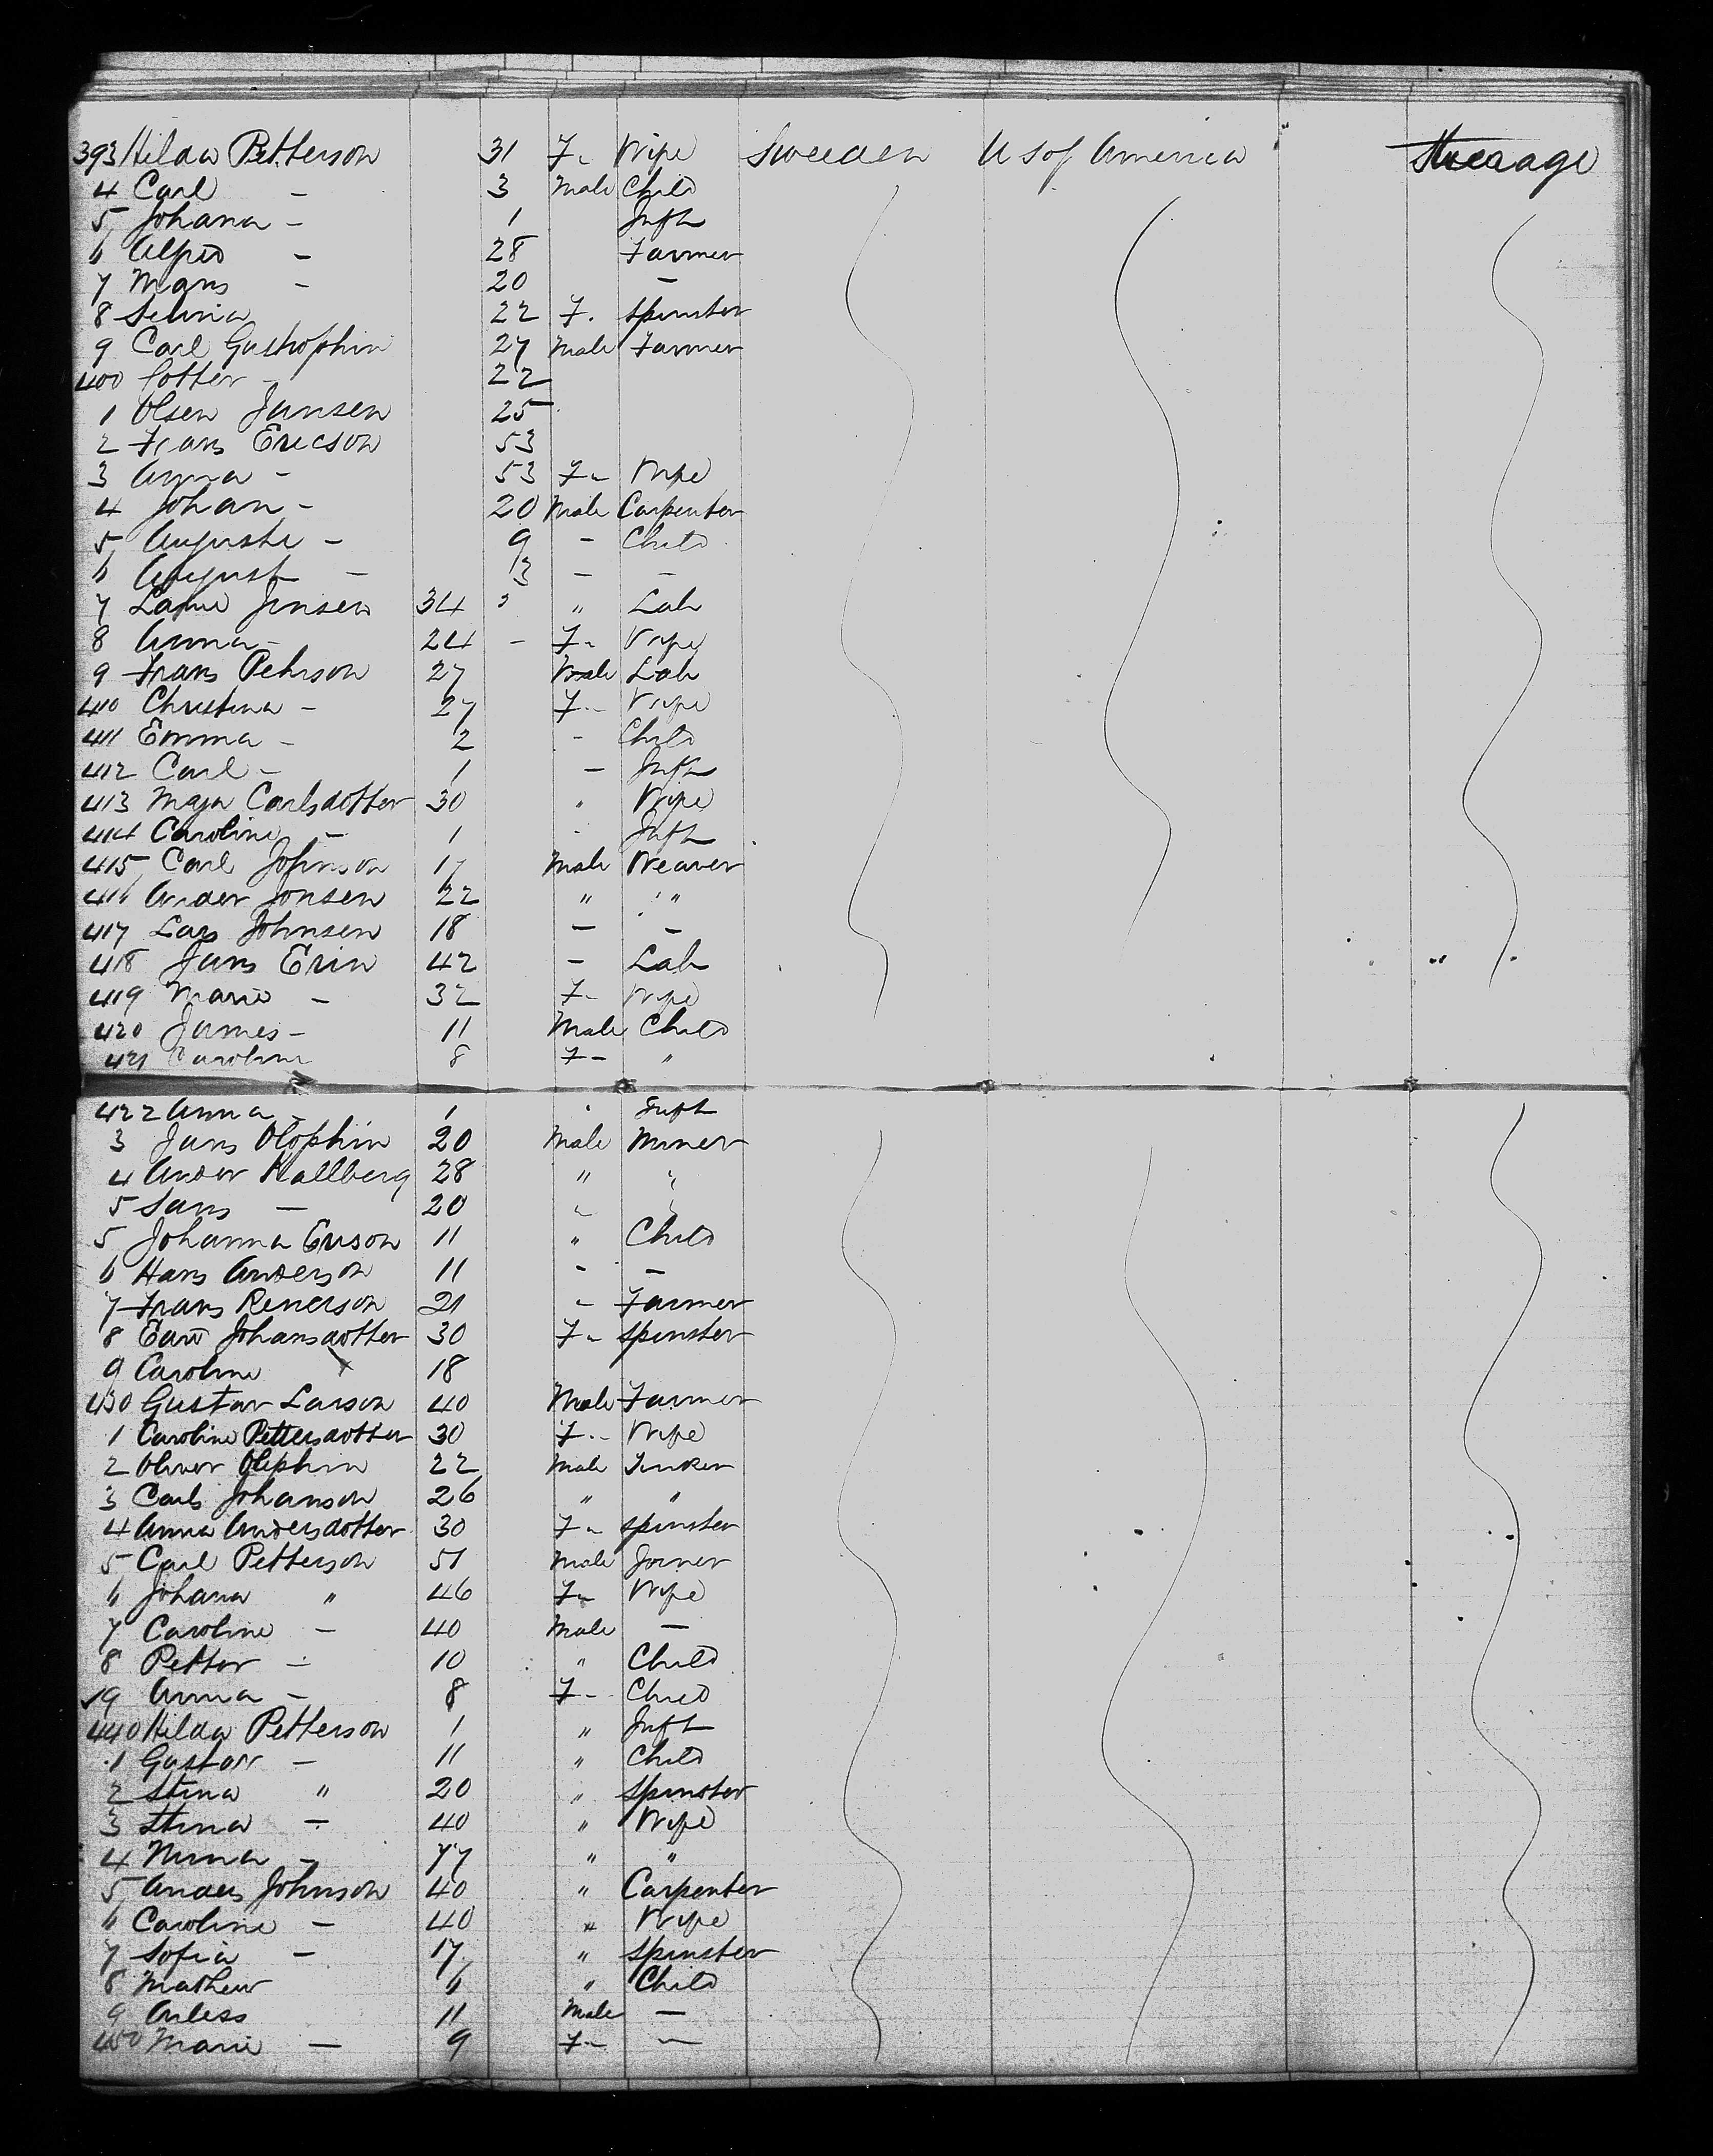 393 Hilda Petterson 31 F- Wife Sweden U S of America Steerage
4 Carl - 3 Male Child
5 Johana - 1 Inft
6 Alfred - 28 Farmer
7 Mans - 20 -
8 Selina 22 F. Spinster
9 Carl Gustrophin 27 Male Farmer
400 - 22
1 Olsen Jansen 25
2 Frans Ericson 53
3 Anna - 53 F- Wife
4 Johan - 20 Male Carpenter
5 Auguste - 9 - Child
6 August - 13 - -
7 Jensen 34 " Lab
8 Anna - 24 - F- Wife
9 Frans Pehrson 27 Male Lab
410 Christina - 27 F- Wife
411 Emma - 2 - Child
412 Carl - 1 - Inft
413 Maja Carlsdotter 30 " Wife
414 Caroline - 1 - Inft
415 Carl Johnson 17 Male Weaver
416 Ander Jonsen 22 " "
417 Lars Johnsen 18 - -
418 Jans Erin 42 - Lab
419 Marie - 32 F- Wife
420 James - 11 Male Child
421 Caroline 8 F- "
422 Anna - 1 " Inft
3 Jans Olophin 20 Male Miner
4 Ander Hallberg 28 " "
5 Sans - 20 " "
5 Johanna Erison 11 " Child
6 Hans Anderson 11 - -
7 Frans Renerson 21 - Farmer
8 Johansdotter 30 F- Spinster
9 Caroline x 18
430 Gustav Larson 40 Male Farmer
1 Caroline Pettersdotter 30 F- Wife
2 Oliver Olephin 22 Male Tinker
3 Carls Johanson 26 " "
4 Anna Andersdotter 30 F- Spinster
5 Carl Petterson 51 Male Joiner
6 Johana " 46 F- Wife
7 Caroline - 40 Male -
8 Petter - 10 " Child
9 Anna - 8 F- Child
440 Hilda Petterson 1 " Inft
1 Gustav - 11 " Child
2 Stina " 20 " Spinster
3 Stina - 40 " Wife
4 Nina - 77 " "
5 Anders Johnson 40 " Carpenter
6 Caroline - 40 " Wife
7 Sofia - 17 " Spinster
8 Mathew 6 " Child
9 Anless 11 Male -
450 Marie - 9 F- -